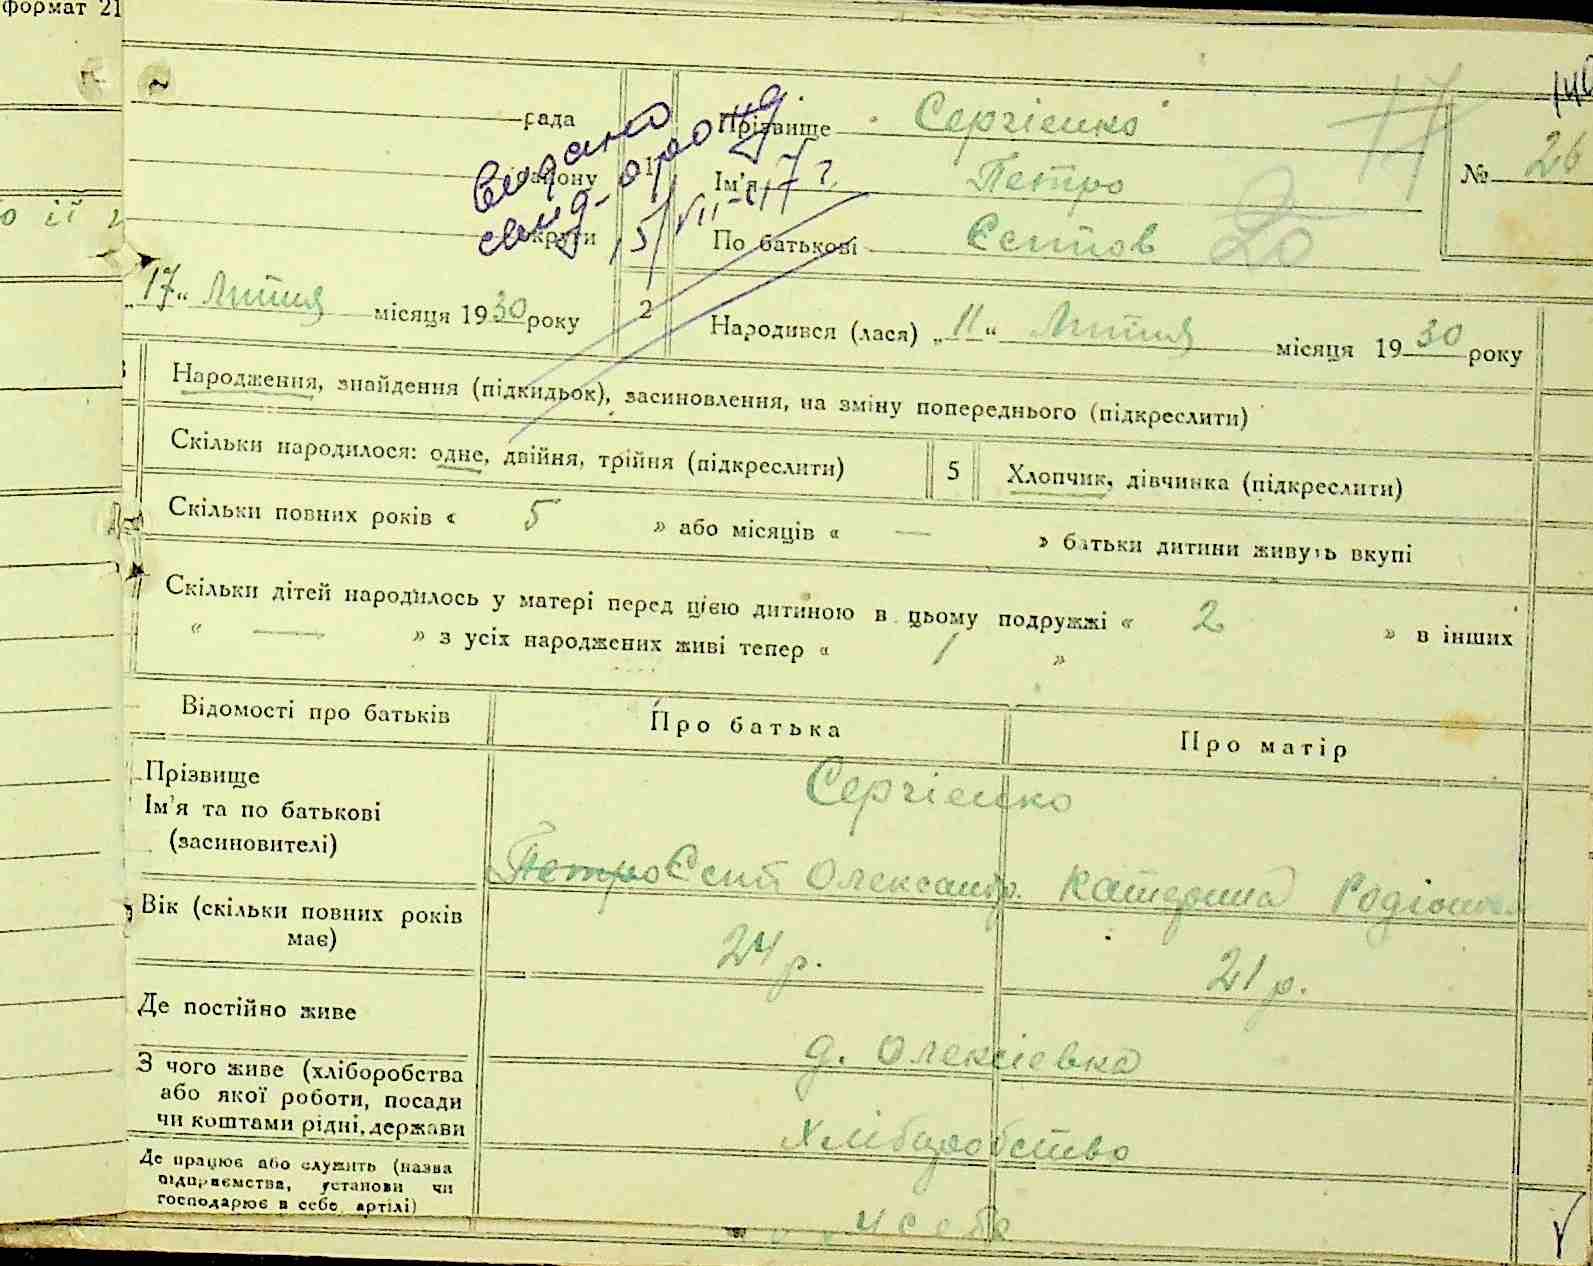 формат 21
рада
району
округи
видано
свид. о рожд.
15/VII-47 г.
1
Прізвище Сергіенко
Ім'я Петро
По батькові Єнтов
17
20
140
№ 26
„17“ Липня місяця 1930 року
2
Народився (лася) „11“ Липня місяця 1930 року
Народження, знайдення (підкидьок), засиновлення, на зміну попереднього (підкреслити)
Скільки народилося: одне, двійня, трійня (підкреслити)
5
Хлопчик, дівчинка (підкреслити)
Скільки повних років « 5 » або місяців « — » батьки дитини живуть вкупі
Скільки дітей народилось у матері перед цією дитиною в цьому подружжі « 2 » в інших
« — » з усіх народжених живі тепер « 1 »
Відомості про батьків
Про батька
Про матір
Прізвище
Ім'я та по батькові
(засиновителі)
Сергіенко
Петро Єнт Олександр. Катерина Родіонов
Вік (скільки повних років
має)
24 р.
21 р.
Де постійно живе
д. Олексіевка
З чого живе (хліборобства
або якої роботи, посади
чи коштами рідні, держави
Хліборобство
Де працює або служить (назва
підприємства, установи чи
господарює в себе артілі)
у себе